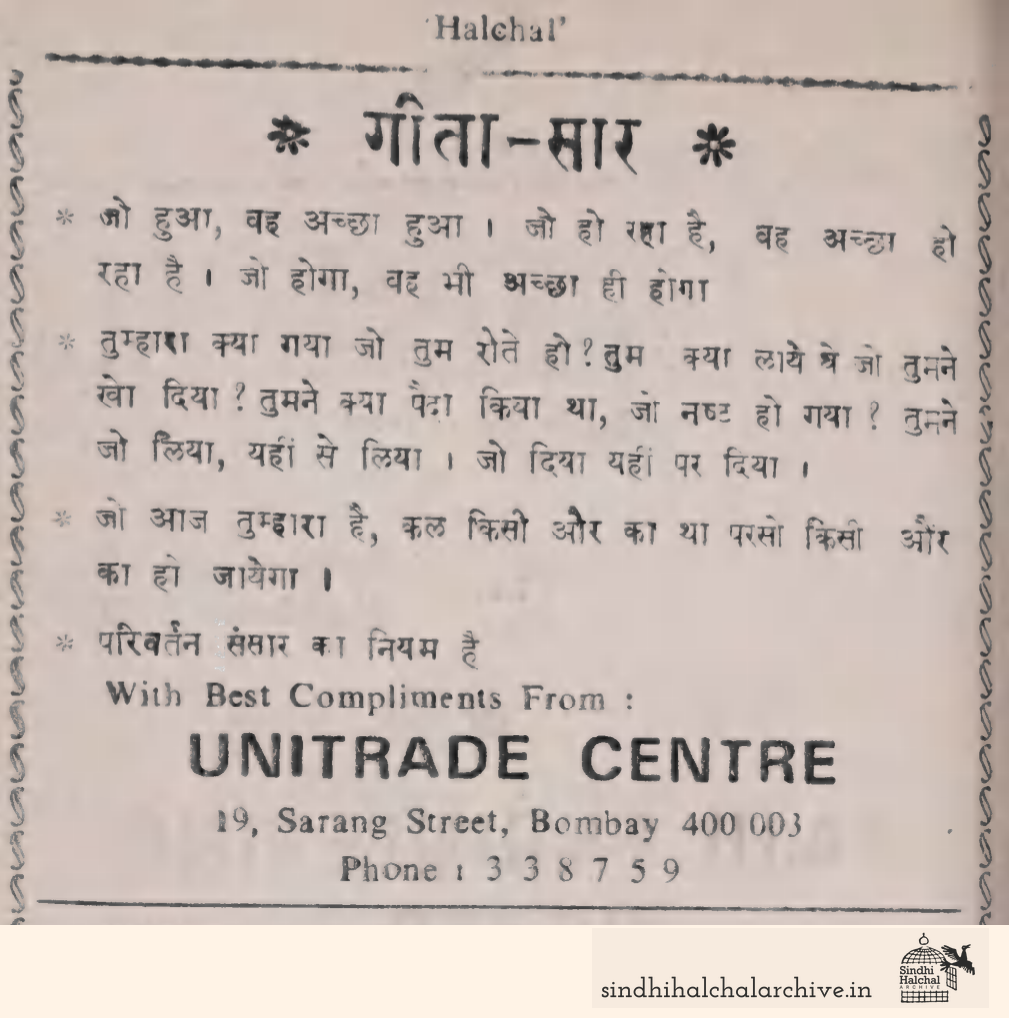 'Halchal'
* गीता-सार *
* जो हुआ, वह अच्छा हुआ । जो हो रहा है, वह अच्छा हो
रहा है । जो होगा, वह भी अच्छा ही होगा
* तुम्हारा क्या गया जो तुम रोते हो ? तुम क्या लाये थे जो तुमने
खो दिया ? तुमने क्या पैदा किया था, जो नष्ट हो गया ? तुमने
जो लिया, यहीं से लिया । जो दिया यहीं पर दिया ।
* जो आज तुम्हारा है, कल किसी और का था परसो किसी और
का हो जायेगा ।
* परिवर्तन संसार का नियम है
With Best Compliments From :
UNITRADE CENTRE
19, Sarang Street, Bombay 400 003
Phone : 3 3 8 7 5 9
sindhihalchalarchive.in
Sindhi
Halchal
ARCHIVE